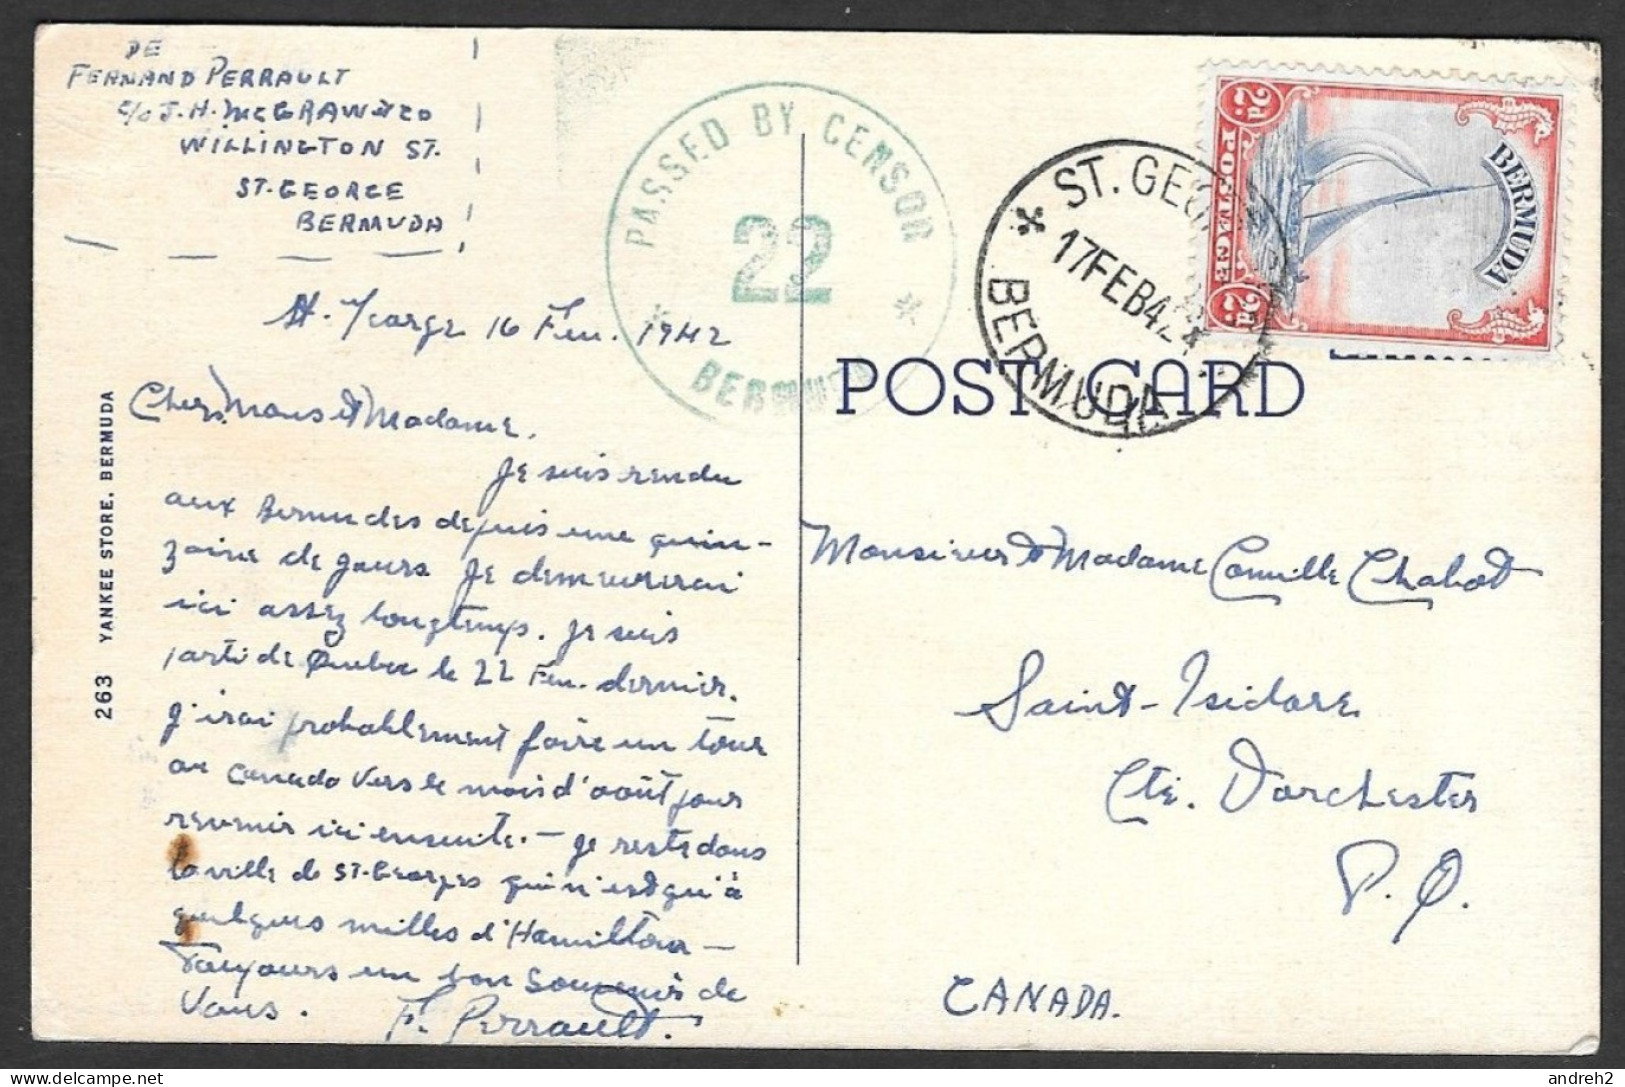 DE
FERNAND PERRAULT
c/o J.H. McGRAW & CO
WILLINGTON ST.
ST-GEORGE
BERMUDA
PASSED BY CENSOR
22
BERMUDA
ST. GEORGE
17 FEB 42
BERMUDA
BERMUDA
2d
POSTAGE
2d
St. George 16 Fev. 1942
Chers Mons et Madame,
Je suis rendu
aux Bermudes depuis une quin-
zaine de jours. Je demeurerai
ici assez longtemps. Je suis
parti de Quebec le 22 Fev. dernier.
J'irai probablement faire un tour
au Canada vers le mois d'août pour
revenir ici ensuite. – Je reste dans
la ville de ST-Georges qui n'est qu'à
quelques milles d'Hamilton –
Toujours un bon souvenir de
Vous. F. Perrault.
263 YANKEE STORE, BERMUDA
POST CARD
Monsieur et Madame Camille Chabot
Saint-Isidore
Cté. Dorchester
P.Q.
CANADA.
andreh2